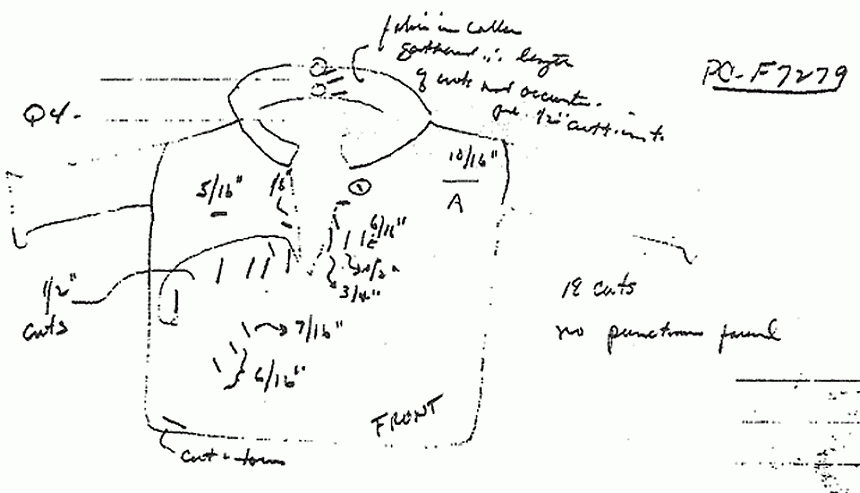 fabric in collar
gathered ∴ length
of cuts not accurate.
1/2" cuts in to
PC-F7279
Q4-
10/16"
A
5/16"
1/8"
1
6/16"
1/2"
3/16"
1/2"
cuts
7/16"
6/16"
18 cuts
no punctures found
FRONT
cut + torn